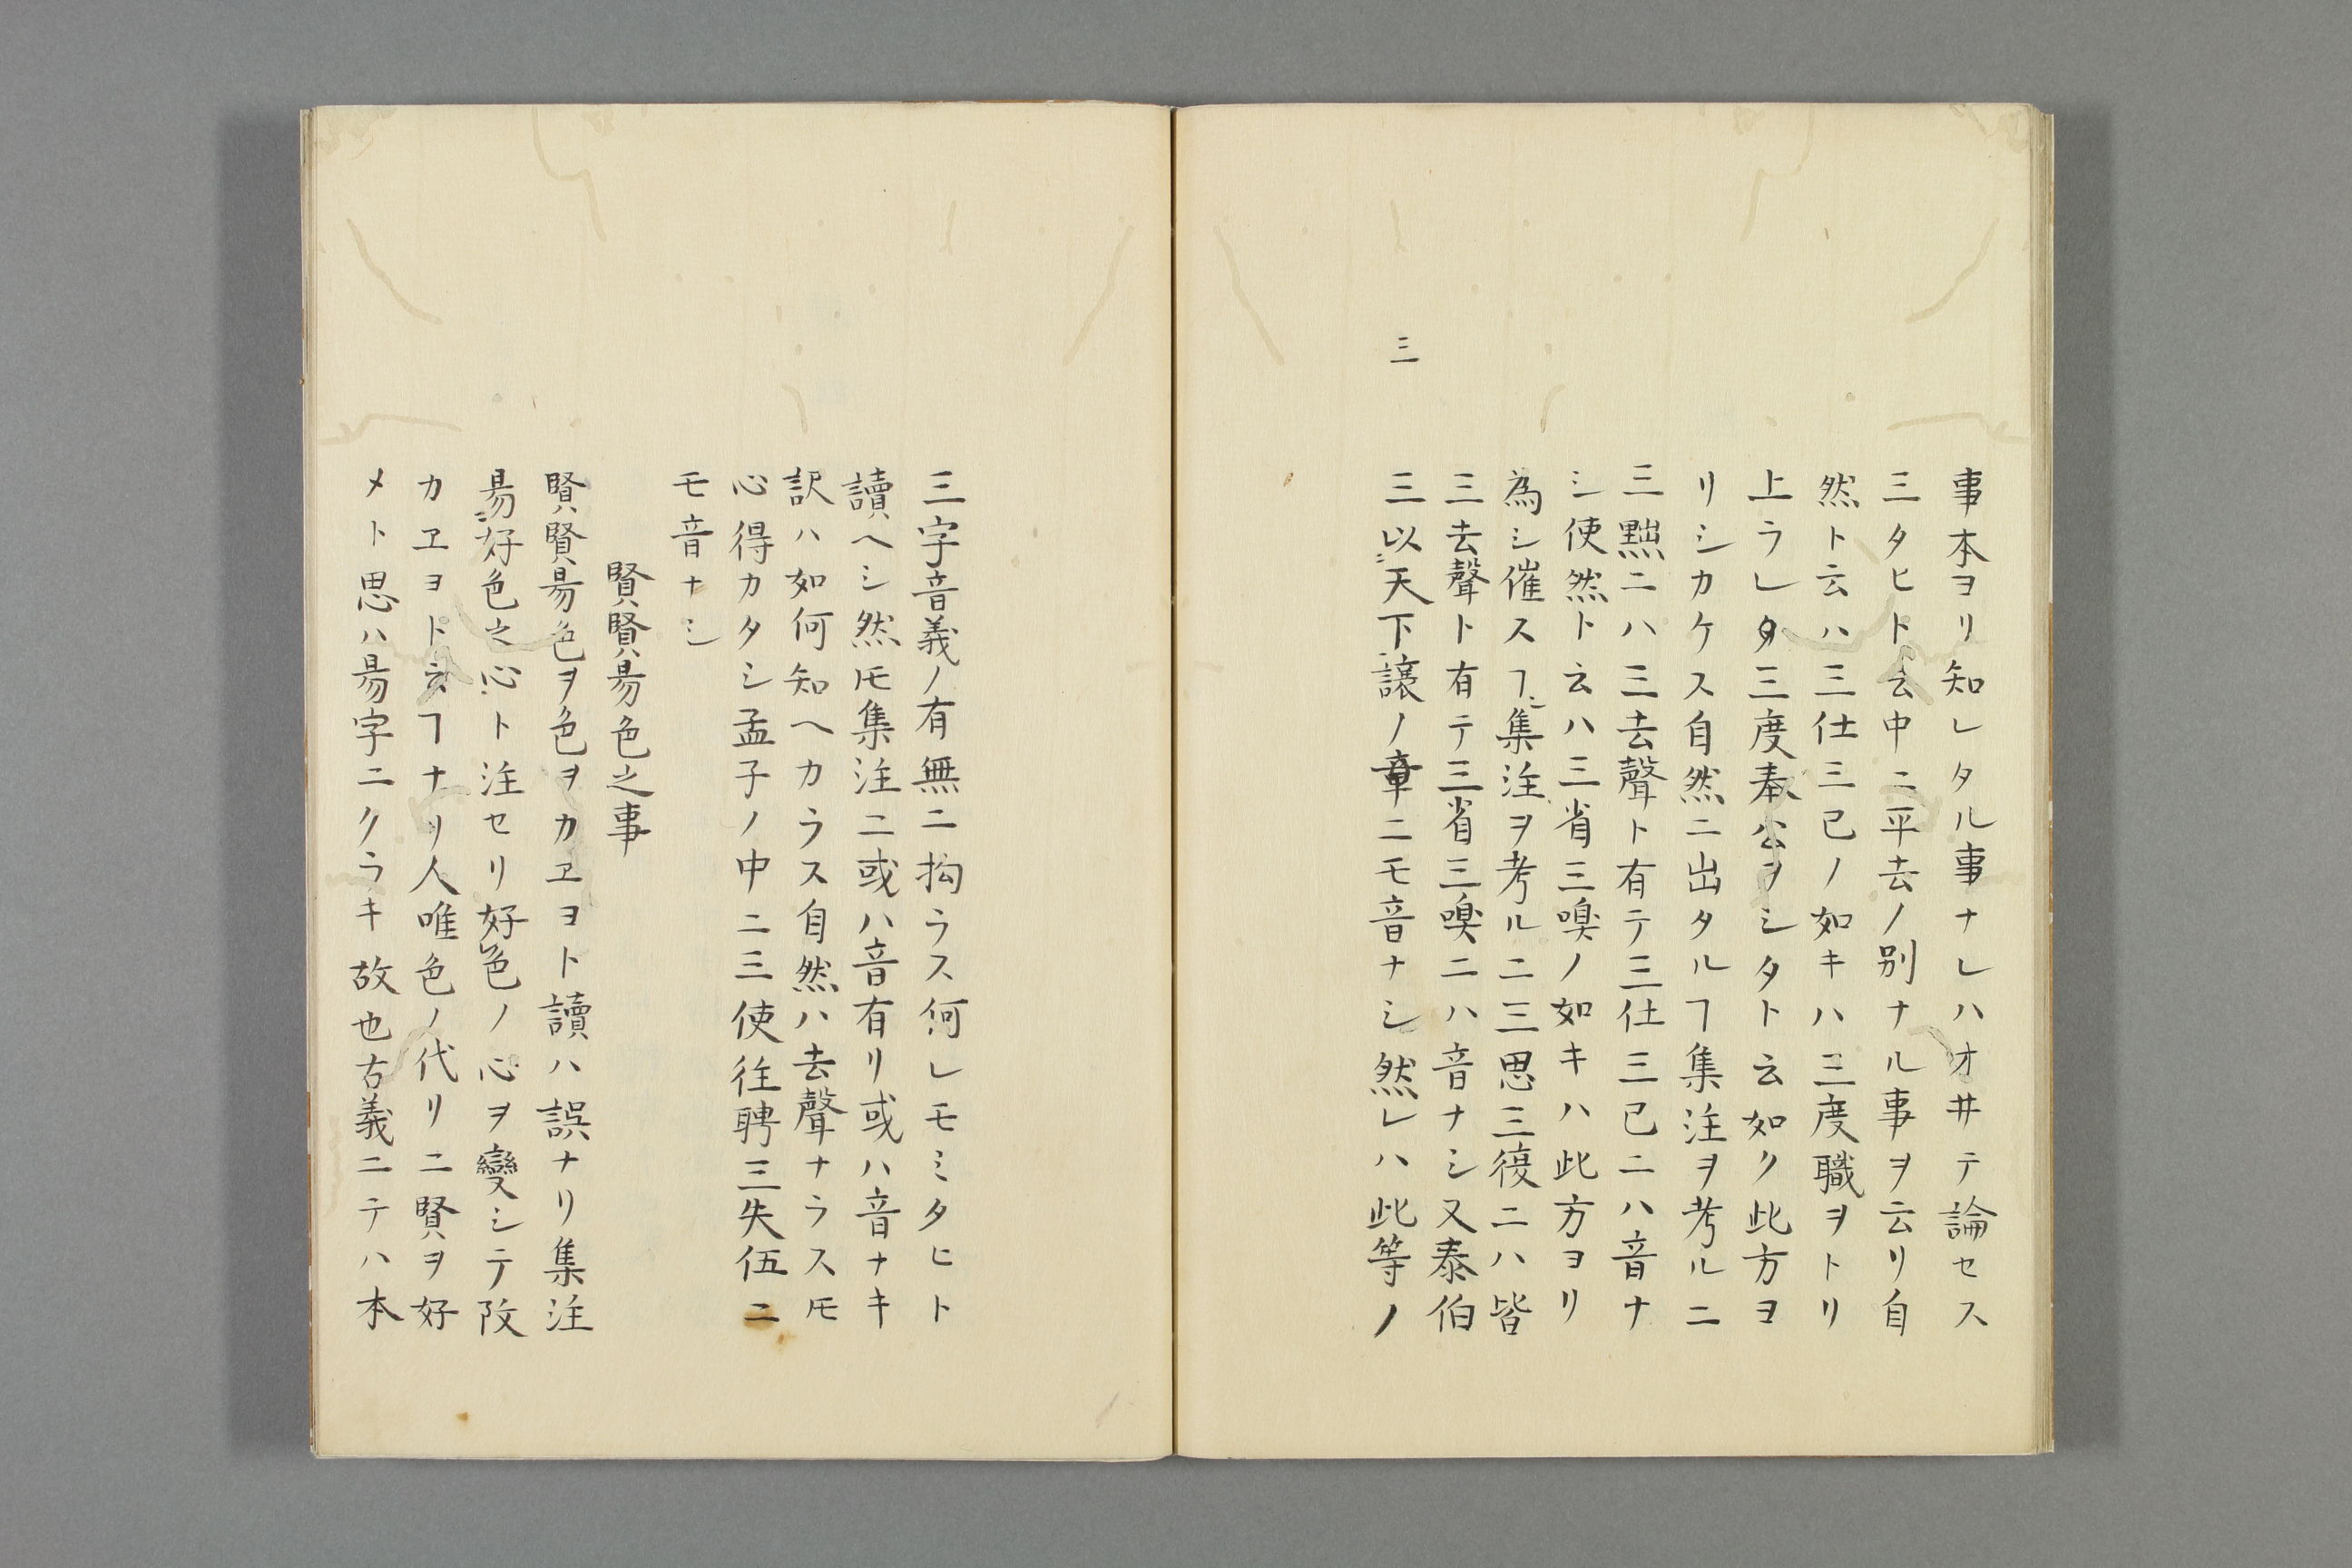 事本ヨリ知レタル事ナレハオ井テ論セス
三タヒト云中ニ平去ノ別ナル事ヲ云リ自
然ト云ハ三仕三已ノ如キハ三度職ヲトリ
上ラレタ三度奉公ヲシタト云如ク此方ヨ
リシカケス自然ニ出タルヿ集注ヲ考ルニ
三黜ニハ三去聲ト有テ三仕三已ニハ音ナ
シ使然ト云ハ三省三嗅ノ如キハ此方ヨリ
為シ催スヿ集注ヲ考ルニ三思三復ニハ皆
三去聲ト有テ三省三嗅ニハ音ナシ又泰伯
三
三以天下譲ノ章ニモ音ナシ然レハ此等ノ
三字音義ノ有無ニ拘ラス何レモミタヒト
讀ヘシ然𪜈集注ニ或ハ音有リ或ハ音ナキ
訳ハ如何知ヘカラス自然ハ去聲ナラス𪜈
心得カタシ孟子ノ中ニ三使往聘三失伍ニ
モ音ナシ
賢賢昜色之事
賢賢昜色ヲ色ヲカヱヨト讀ハ誤ナリ集注
昜好色之心ト注セリ好色ノ心ヲ變シテ改
カヱヨト云ヿナリ人唯色ノ代リニ賢ヲ好
メト思ハ昜字ニクラキ故也古義ニテハ本